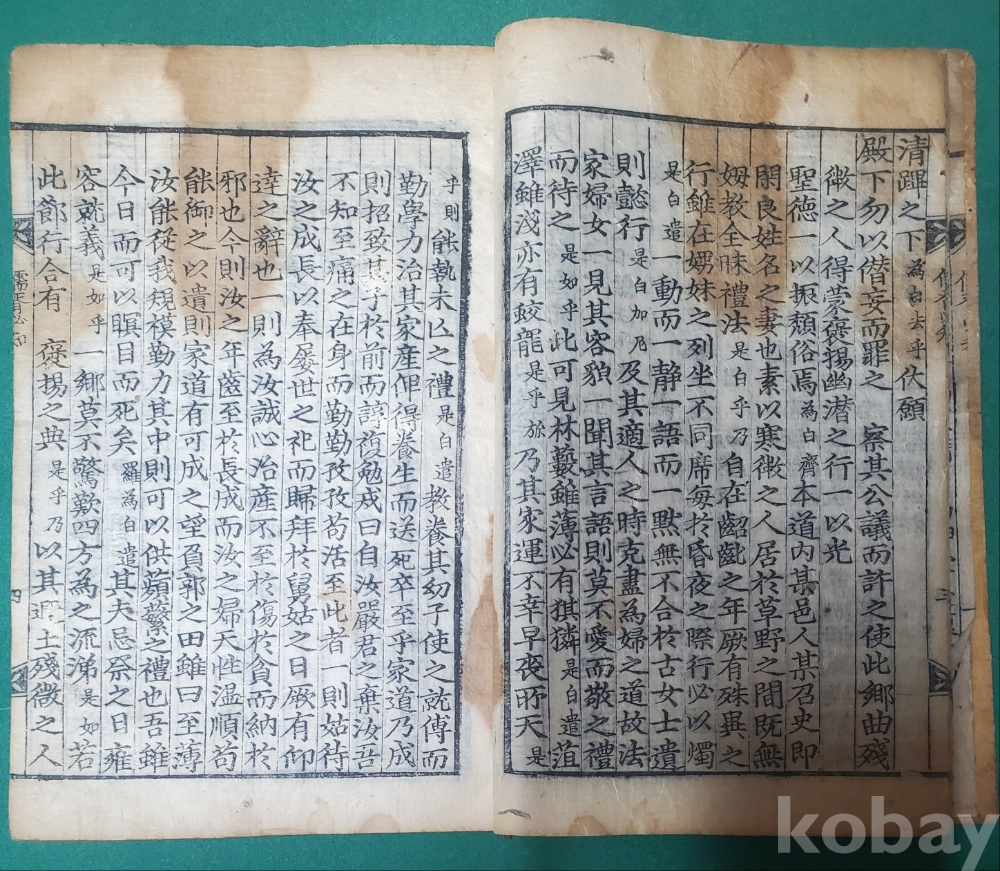 清蹕之下為白去乎伏願
殿下勿以僭妄而罪之 察其公議而許之使此鄉曲殘
微之人得蒙褒揚幽潜之行一以光
聖德一以振頹俗焉為白齊本道内某邑人某召史即
閑良姓名之妻也素以寒微之人居於草野之間既無
姆教全昧禮法是白乎乃自在齠齔之年厥有殊異之
行雖在娚妹之列坐不同席每於昏夜之際行必以燭
是白遣一動而一静一語而一默無不合於古女士遺
則懿行是白加尼及其適人之時克盡為婦之道故法
家婦女一見其容貌一聞其言語則莫不愛而敬之禮
而待之是如乎此可見林藪雖薄必有猉獜是白遣菹
澤雖淺亦有鮫龍是乎旀乃其家運不幸早喪所天是
乎則能執未亾之禮是白遣教養其幼子使之就傅而
勤學力治其家産俾得養生而送死卒至乎家道乃成
則招致其子於前而諄復勉戒曰自汝嚴君之棄汝吾
不知至痛之在身而勤勤孜孜苟活至此者一則姑待
汝之成長以奉屡世之祀而歸拜於舅姑之日厥有仰
達之辭也一則為汝誠心治産不至於傷於貧而納於
邪也今則汝之年齒至於長成而汝之婦天性温順苟
能御之以遺則家道有可成之望負郭之田雖曰至薄
汝能從我規模勤力其中則可以供蘋蘩之禮也吾雖
今日而可以瞑目而死矣羅為白遣其夫忌祭之日雍
容就義是如乎一鄉莫不驚歎四方為之流涕是如若
此節行合有 褒揚之典是乎乃以其遐土殘微之人
儒胥必知
四
kobay